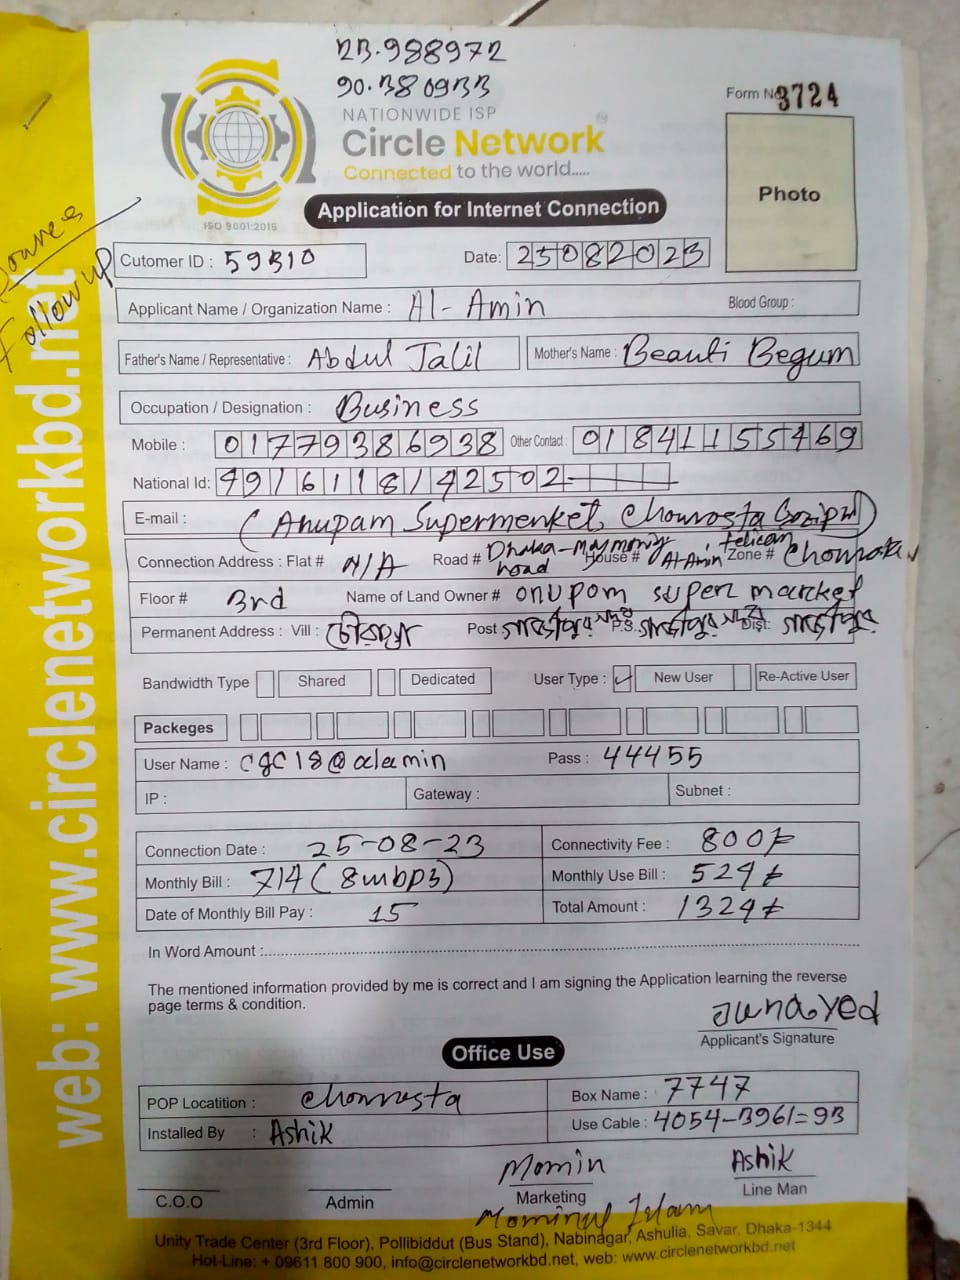 23.988972
90.380933
NATIONWIDE ISP
Circle Network
Connected to the world.....
ISO 9001:2015
Form No 3724
Photo
Application for Internet Connection
Follow up
web: www.circlenetworkbd.net
Cutomer ID : 59310
Date: 25082023
Applicant Name / Organization Name : Al-Amin Blood Group :
Father's Name / Representative : Abdul Jalil Mother's Name : Beauti Begum
Occupation / Designation : Business
Mobile : 01779386938 Other Contact : 01841155469
National Id:
E-mail : (Anupam Supermerket, Chowrosta Gazipur)
Connection Address : Flat # N/A Road # Dhaka-Maymonsing Road House # Al-Amin telicom Zone # Chowrasta
Floor # 3rd Name of Land Owner # onupom super market
Permanent Address : Vill : Post P.S. Dist:
Bandwidth Type Shared Dedicated User Type : ✓ New User Re-Active User
Packeges
User Name : cgc18@alamin Pass : 44455
IP : Gateway : Subnet :
Connection Date : 25-08-23 Connectivity Fee : 800/-
Monthly Bill : 714 (8mbps) Monthly Use Bill : 524/-
Date of Monthly Bill Pay : 15 Total Amount : 1324/-
In Word Amount :
The mentioned information provided by me is correct and I am signing the Application learning the reverse
page terms & condition.
Junayed
Applicant's Signature
Office Use
POP Locatition : Chowrasta Box Name : 7747
Installed By : Ashik Use Cable : 4054-3961=93
Momin Ashik
C.O.O Admin Marketing Line Man
Mominul Islam
Unity Trade Center (3rd Floor), Pollibiddut (Bus Stand), Nabinagar, Ashulia, Savar, Dhaka-1344
Hot-Line: + 09611 800 900, info@circlenetworkbd.net, web: www.circlenetworkbd.net